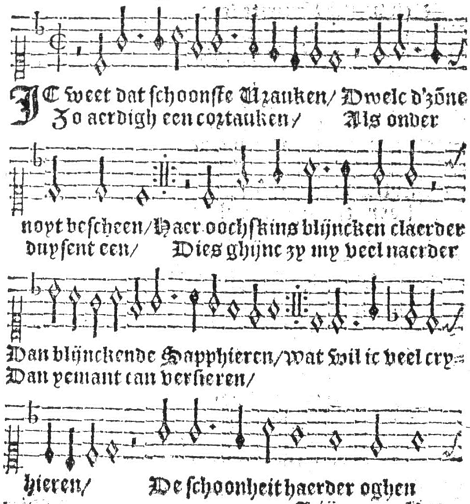 IC weet dat schoonste Vrauken/ Dwelc d'zōne
Zo aerdigh een cortauken/ Als onder
noyt bescheen/ Haer oochskins blijncken claerder
duysent een/ Dies ghijnc zy my veel naerder
Dan blijnckende Sapphieren/ wat wil ic veel cry-
Dan yemant can versieren/
hieren/ De schoonheit haerder oghen